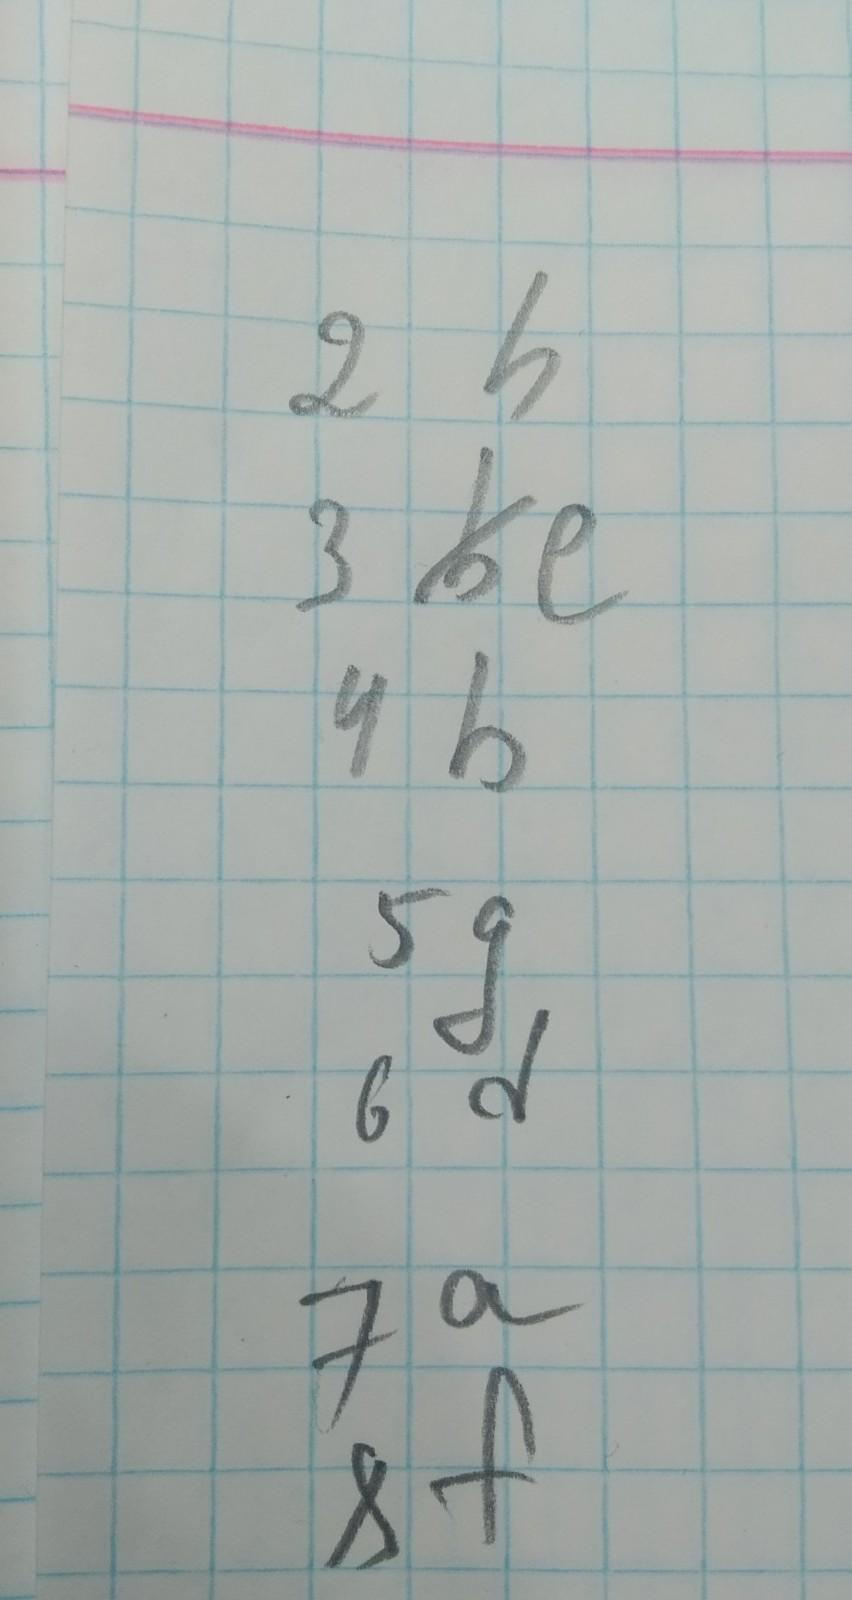 2 h
3 e
4 b
5 g
6 d
7 a
8 f